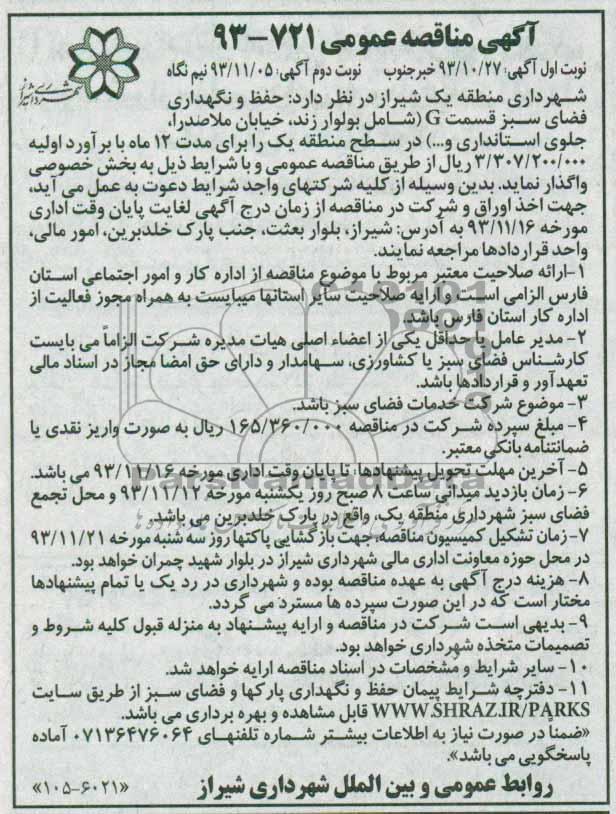 آگهی مناقصه عمومی ۷۲۱-۹۳
نوبت اول آگهی: ۹۳/۱۰/۲۷ خبرجنوب نوبت دوم آگهی: ۹۳/۱۱/۰۵ نیم نگاه
شهرداری شیراز
شهرداری منطقه یک شیراز در نظر دارد: حفظ و نگهداری
فضای سبز قسمت G (شامل بولوار زند، خیابان ملاصدرا،
جلوی استانداری و...) در سطح منطقه یک را برای مدت ۱۲ ماه با برآورد اولیه
۳/۳۰۷/۲۰۰/۰۰۰ ریال از طریق مناقصه عمومی و با شرایط ذیل به بخش خصوصی
واگذار نماید. بدین وسیله از کلیه شرکتهای واجد شرایط دعوت به عمل می آید،
جهت اخذ اوراق و شرکت در مناقصه از زمان درج آگهی لغایت پایان وقت اداری
مورخه ۹۳/۱۱/۱۶ به آدرس: شیراز، بلوار بعثت، جنب پارک خلدبرین، امور مالی،
واحد قراردادها مراجعه نمایند.
۱-ارائه صلاحیت معتبر مربوط با موضوع مناقصه از اداره کار و امور اجتماعی استان
فارس الزامی است و ارایه صلاحیت سایر استانها میبایست به همراه مجوز فعالیت از
اداره کار استان فارس باشد.
۲- مدیر عامل یا حداقل یکی از اعضاء اصلی هیات مدیره شرکت الزاماً می بایست
کارشناس فضای سبز یا کشاورزی، سهامدار و دارای حق امضا مجاز در اسناد مالی
تعهدآور و قراردادها باشد.
۳- موضوع شرکت خدمات فضای سبز باشد.
۴- مبلغ سپرده شرکت در مناقصه ۱۶۵/۳۶۰/۰۰۰ ریال به صورت واریز نقدی یا
ضمانتنامه بانکی معتبر.
۵- آخرین مهلت تحویل پیشنهادها: تا پایان وقت اداری مورخه ۹۳/۱۱/۱۶ می باشد.
ParsNamadData
۶- زمان بازدید میدانی ساعت ۸ صبح روز یکشنبه مورخه ۹۳/۱۱/۱۲ و محل تجمع
فضای سبز شهرداری منطقه یک، واقع در پارک خلدبرین می باشد.
۷- زمان تشکیل کمیسیون مناقصه، جهت بازگشایی پاکتها روز سه شنبه مورخه ۹۳/۱۱/۲۱
در محل حوزه معاونت اداری مالی شهرداری شیراز در بلوار شهید چمران خواهد بود.
۸- هزینه درج آگهی به عهده مناقصه بوده و شهرداری در رد یک یا تمام پیشنهادها
مختار است که در این صورت سپرده ها مسترد می گردد.
۹- بدیهی است شرکت در مناقصه و ارایه پیشنهاد به منزله قبول کلیه شروط و
تصمیمات متخذه شهرداری خواهد بود.
۱۰- سایر شرایط و مشخصات در اسناد مناقصه ارایه خواهد شد.
۱۱- دفترچه شرایط پیمان حفظ و نگهداری پارکها و فضای سبز از طریق سایت
WWW.SHRAZ.IR/PARKS قابل مشاهده و بهره برداری می باشد.
«ضمناً در صورت نیاز به اطلاعات بیشتر شماره تلفنهای ۰۷۱۳۶۴۷۶۰۶۴ آماده
پاسخگویی می باشد».
روابط عمومی و بین الملل شهرداری شیراز «۱۰۵-۶۰۲۱»